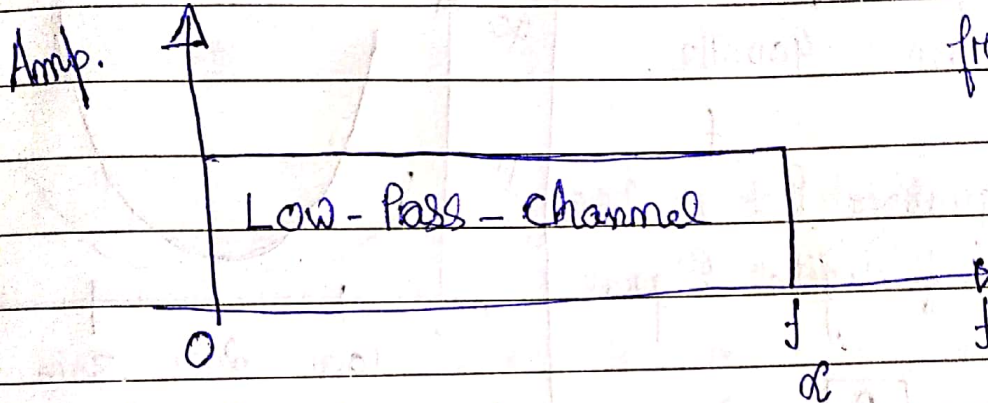 Amp.
Low-Pass-Channel
0
f
f
α